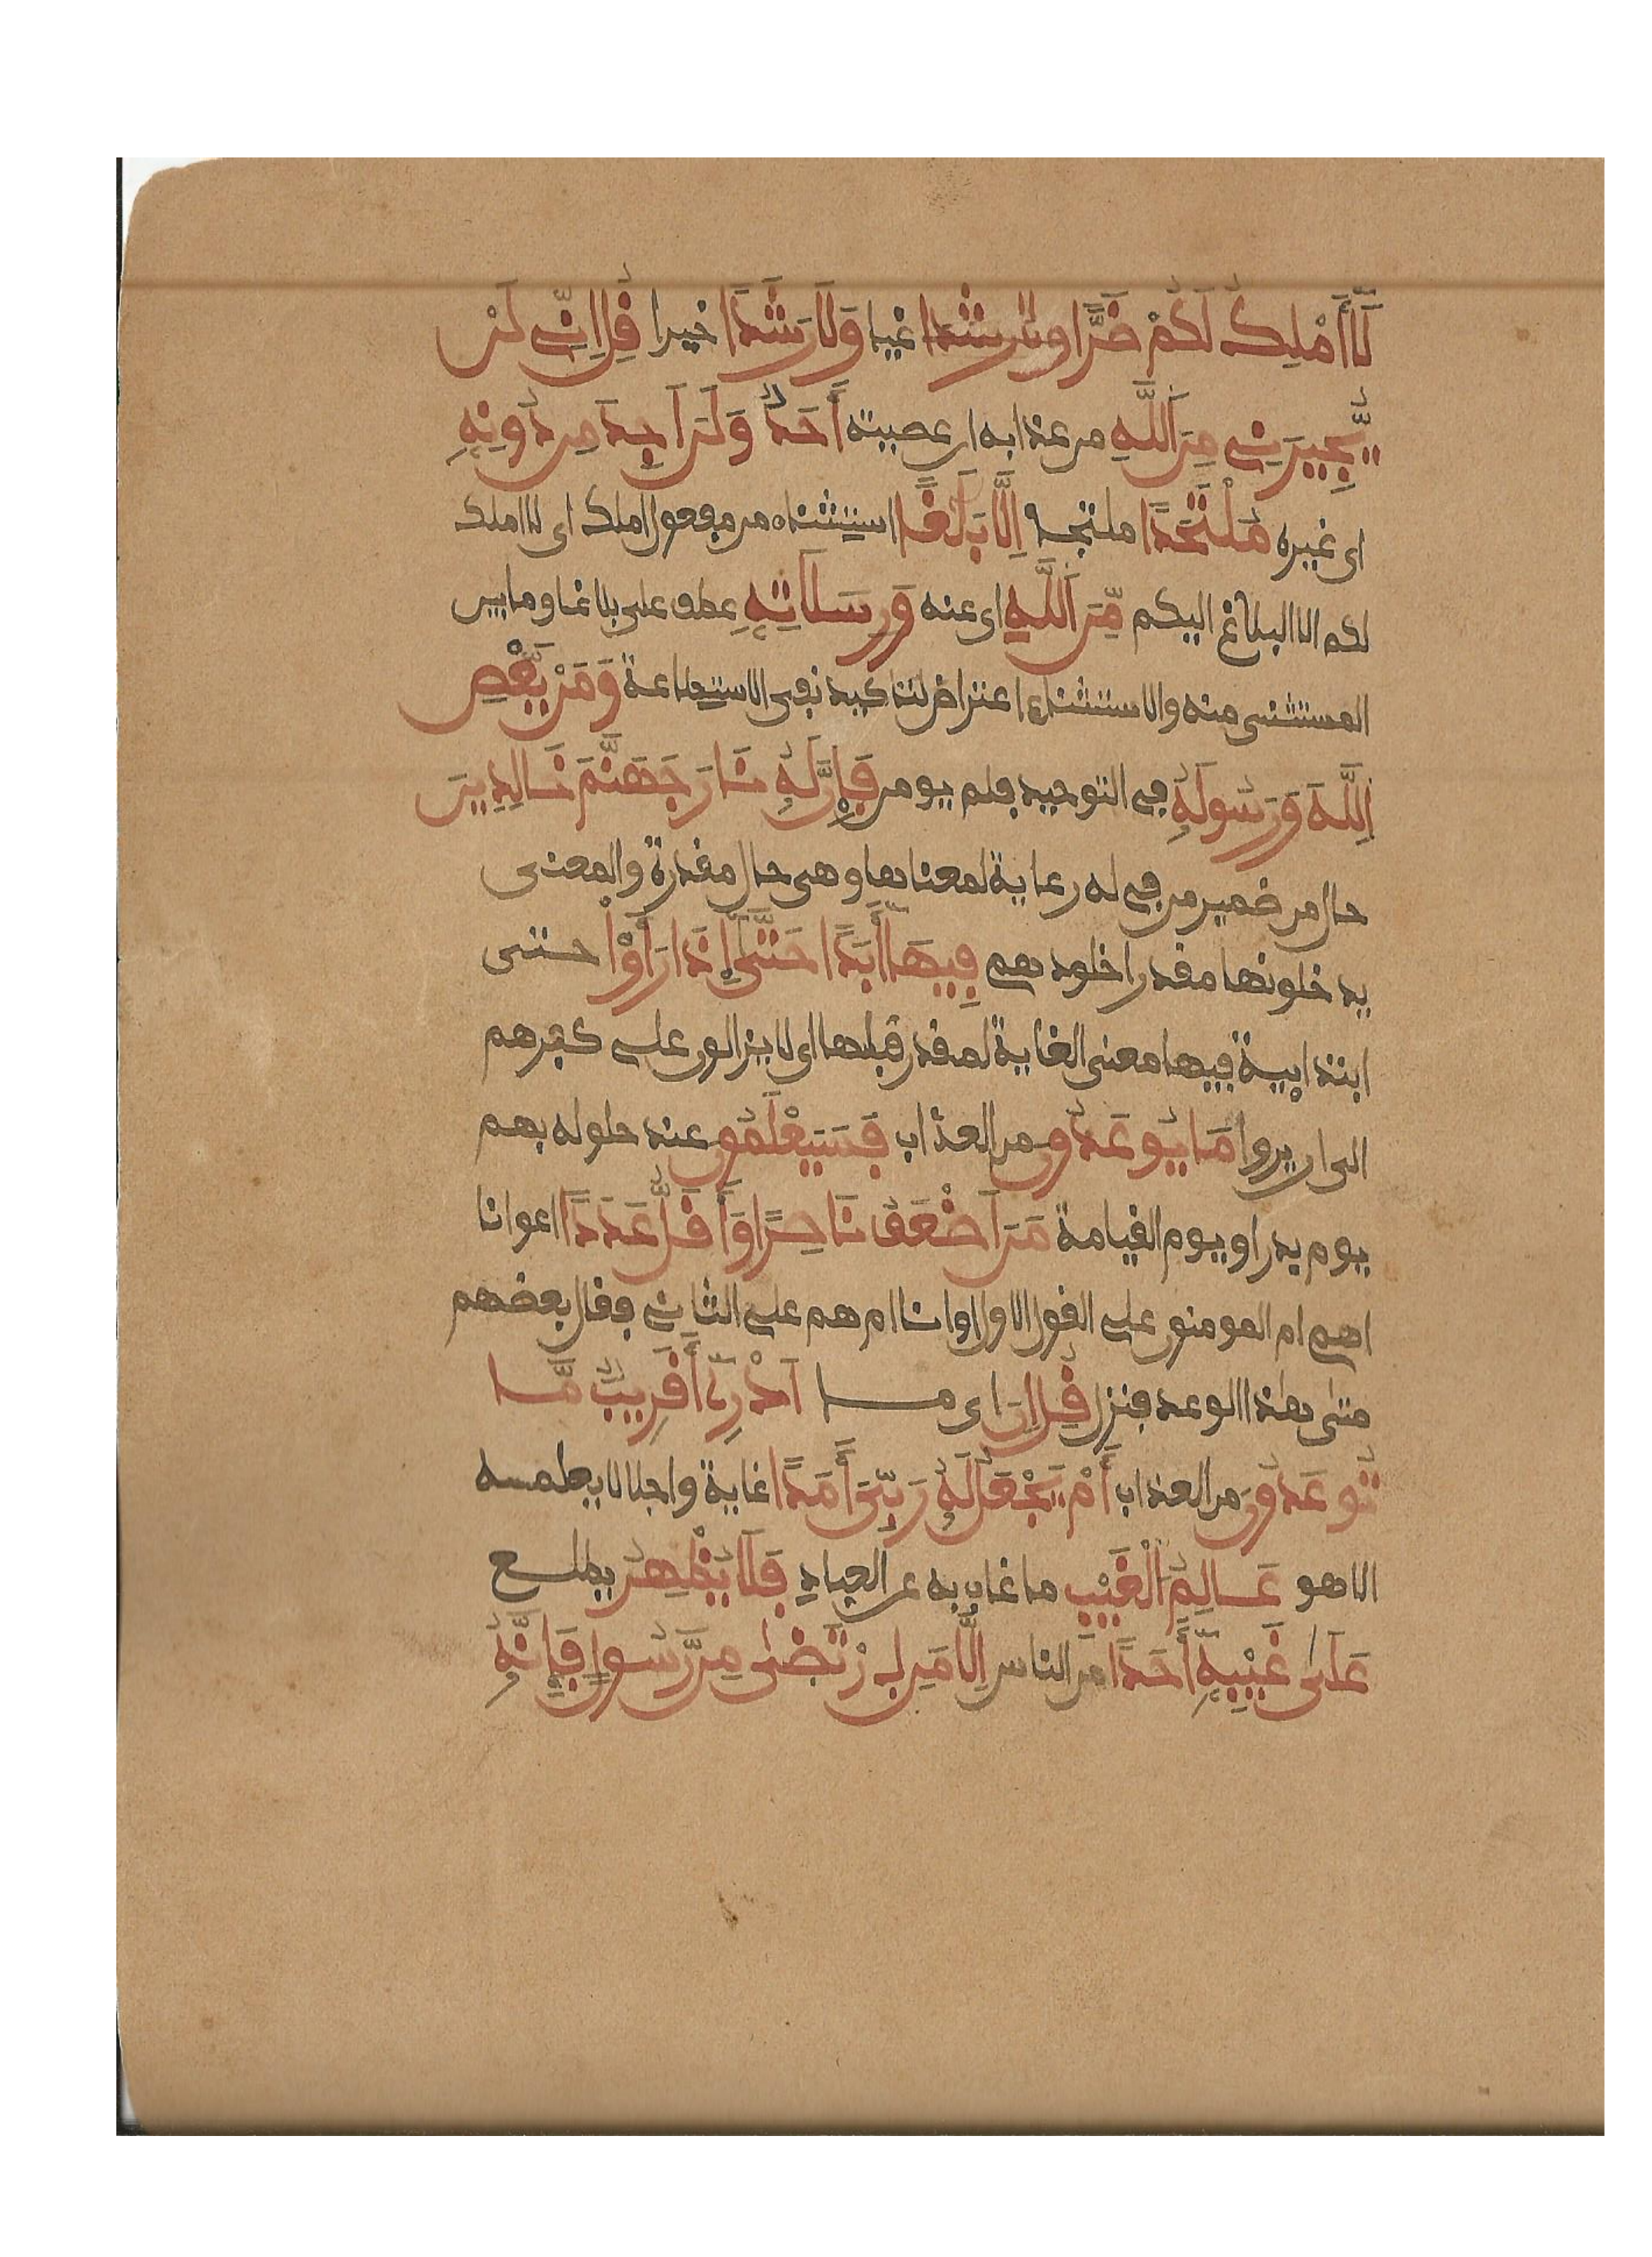 لَآ أَمْلِكُ لَكُمْ ضَرًّا ولا رشدا غيا وَلَا رَشَدًا خيرا قُلِ اِنِّے لَنْ
يُّجِيرَنِے مِنَ اَللَّهِ من عذابه ان عصيته أَحَدٌ وَلَنَ اَجِدَ مِن دُونِهِ
اى غيره مُلْتَحَدًا ملتجه اِلَّا بَلَٰغًا استثناء من مفعول املك اى لا املك
لكم الا البلاغ اليكم مِّنَ اَللَّهِ اى عنه وَرِسَٰلَٰتِهِ عطف على بلاغا وما بين
المستثنى منه والاستثناء اعتراض لتاكيد نفى الاستطاعة وَمَنْ يَّعْصِ
اِللَّهَ وَرَسُولَهُ فى التوحيد فلم يومن فَإِنَّ لَهُ نَارَ جَهَنَّمَ خَٰلِدِينَ
حال من ضمير من فى له رعاية لمعناها وهى حال مقدرة والمعنى
يدخلونها مقدرا خلودهم فِيهَآ أَبَدًا حَتَّىٰ إِذَا رَأَوْا حتى
ابتدايية فيها معنى الغاية لمقدر قبلها اى لا يزالون على كفرهم
الى ان يروا مَا يُوعَدُونَ من العذاب فَسَيَعْلَمُونَ عند حلوله بهم
يوم بدر او يوم القيامة مَنَ اَضْعَفُ نَاصِرًا وَأَقَلُّ عَدَدًا اعوانا
اهم ام المومنون على القول الاول او انا ام هم على الثانے فقال بعضهم
متى هذا الوعد فنزل قُلِ اِنَ اى ما اَدْرِےٓ أَقَرِيبٌ مَّا
تُوعَدُونَ من العذاب أَمْ يَجْعَلُ لَهُ رَبِّىَ أَمَدًا غاية واجلا لا يعلمه
الا هو عَٰلِمُ اَلْغَيْبِ ما غاب به عن العباد فَلَا يُظْهِرُ يطلع
عَلَىٰ غَيْبِهِٓ أَحَدًا من الناس اِلَّا مَنِ اِرْتَضَىٰ مِن رَّسُولٍ فَإِنَّهُ